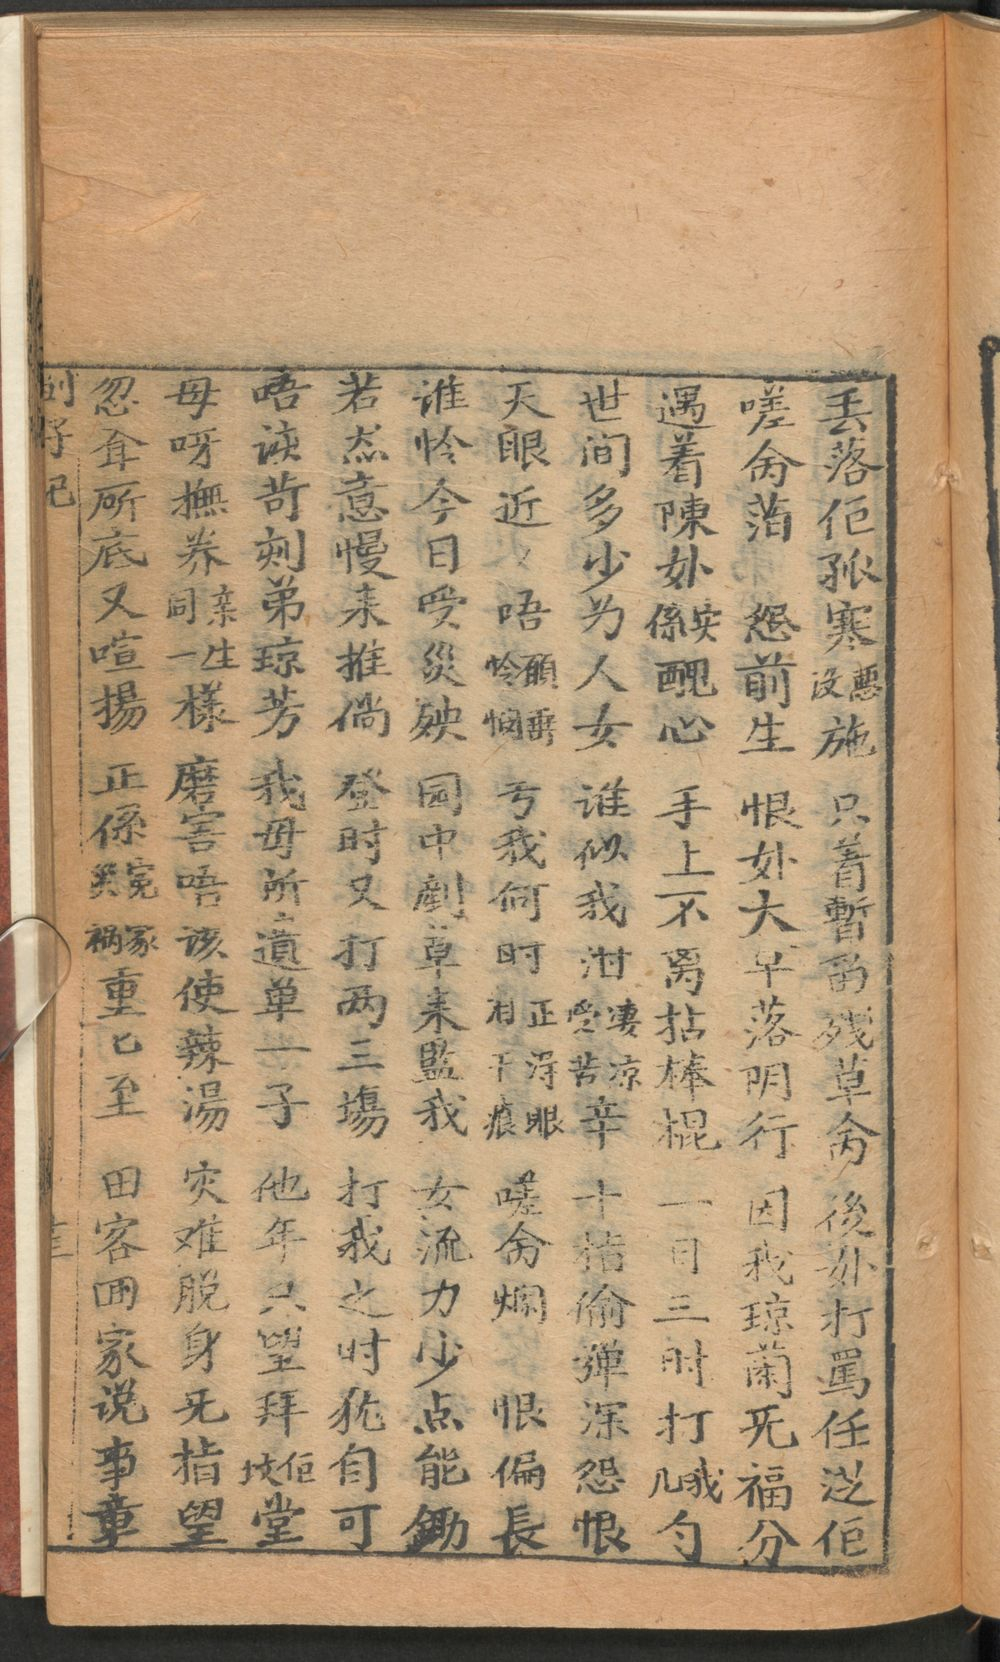 丢落佢孤寒没恵施 只着暫畄残草命 後処打罵任𨒪佢
嗟命薄 怨前生 恨処大早落阴行 因我琼蘭无福分
遇着陳処係实醜心 手上不离拈棒棍 一日三时打我几勺
世间多少为人女 谁似我泔受凄苦凉辛 十指偷弹深怨恨
天眼近 唔怜顧悯垂 亏我何时正得眼有干痕 嗟命爛 恨偏長
谁怜今日受災殃 园中剷草来監我 女流力少点能鋤
若然意慢来推倘 登时又打两三塲 打我之时犹自可
唔该苛刻弟琼芳 我母所遺单一子 他年只望拜佢坟堂
母呀撫养同亲一生様 磨害唔该使辣湯 灾难脱身无指望
忽耳所底又喧揚 正係冤家災祸重已至 田客囬家说事章